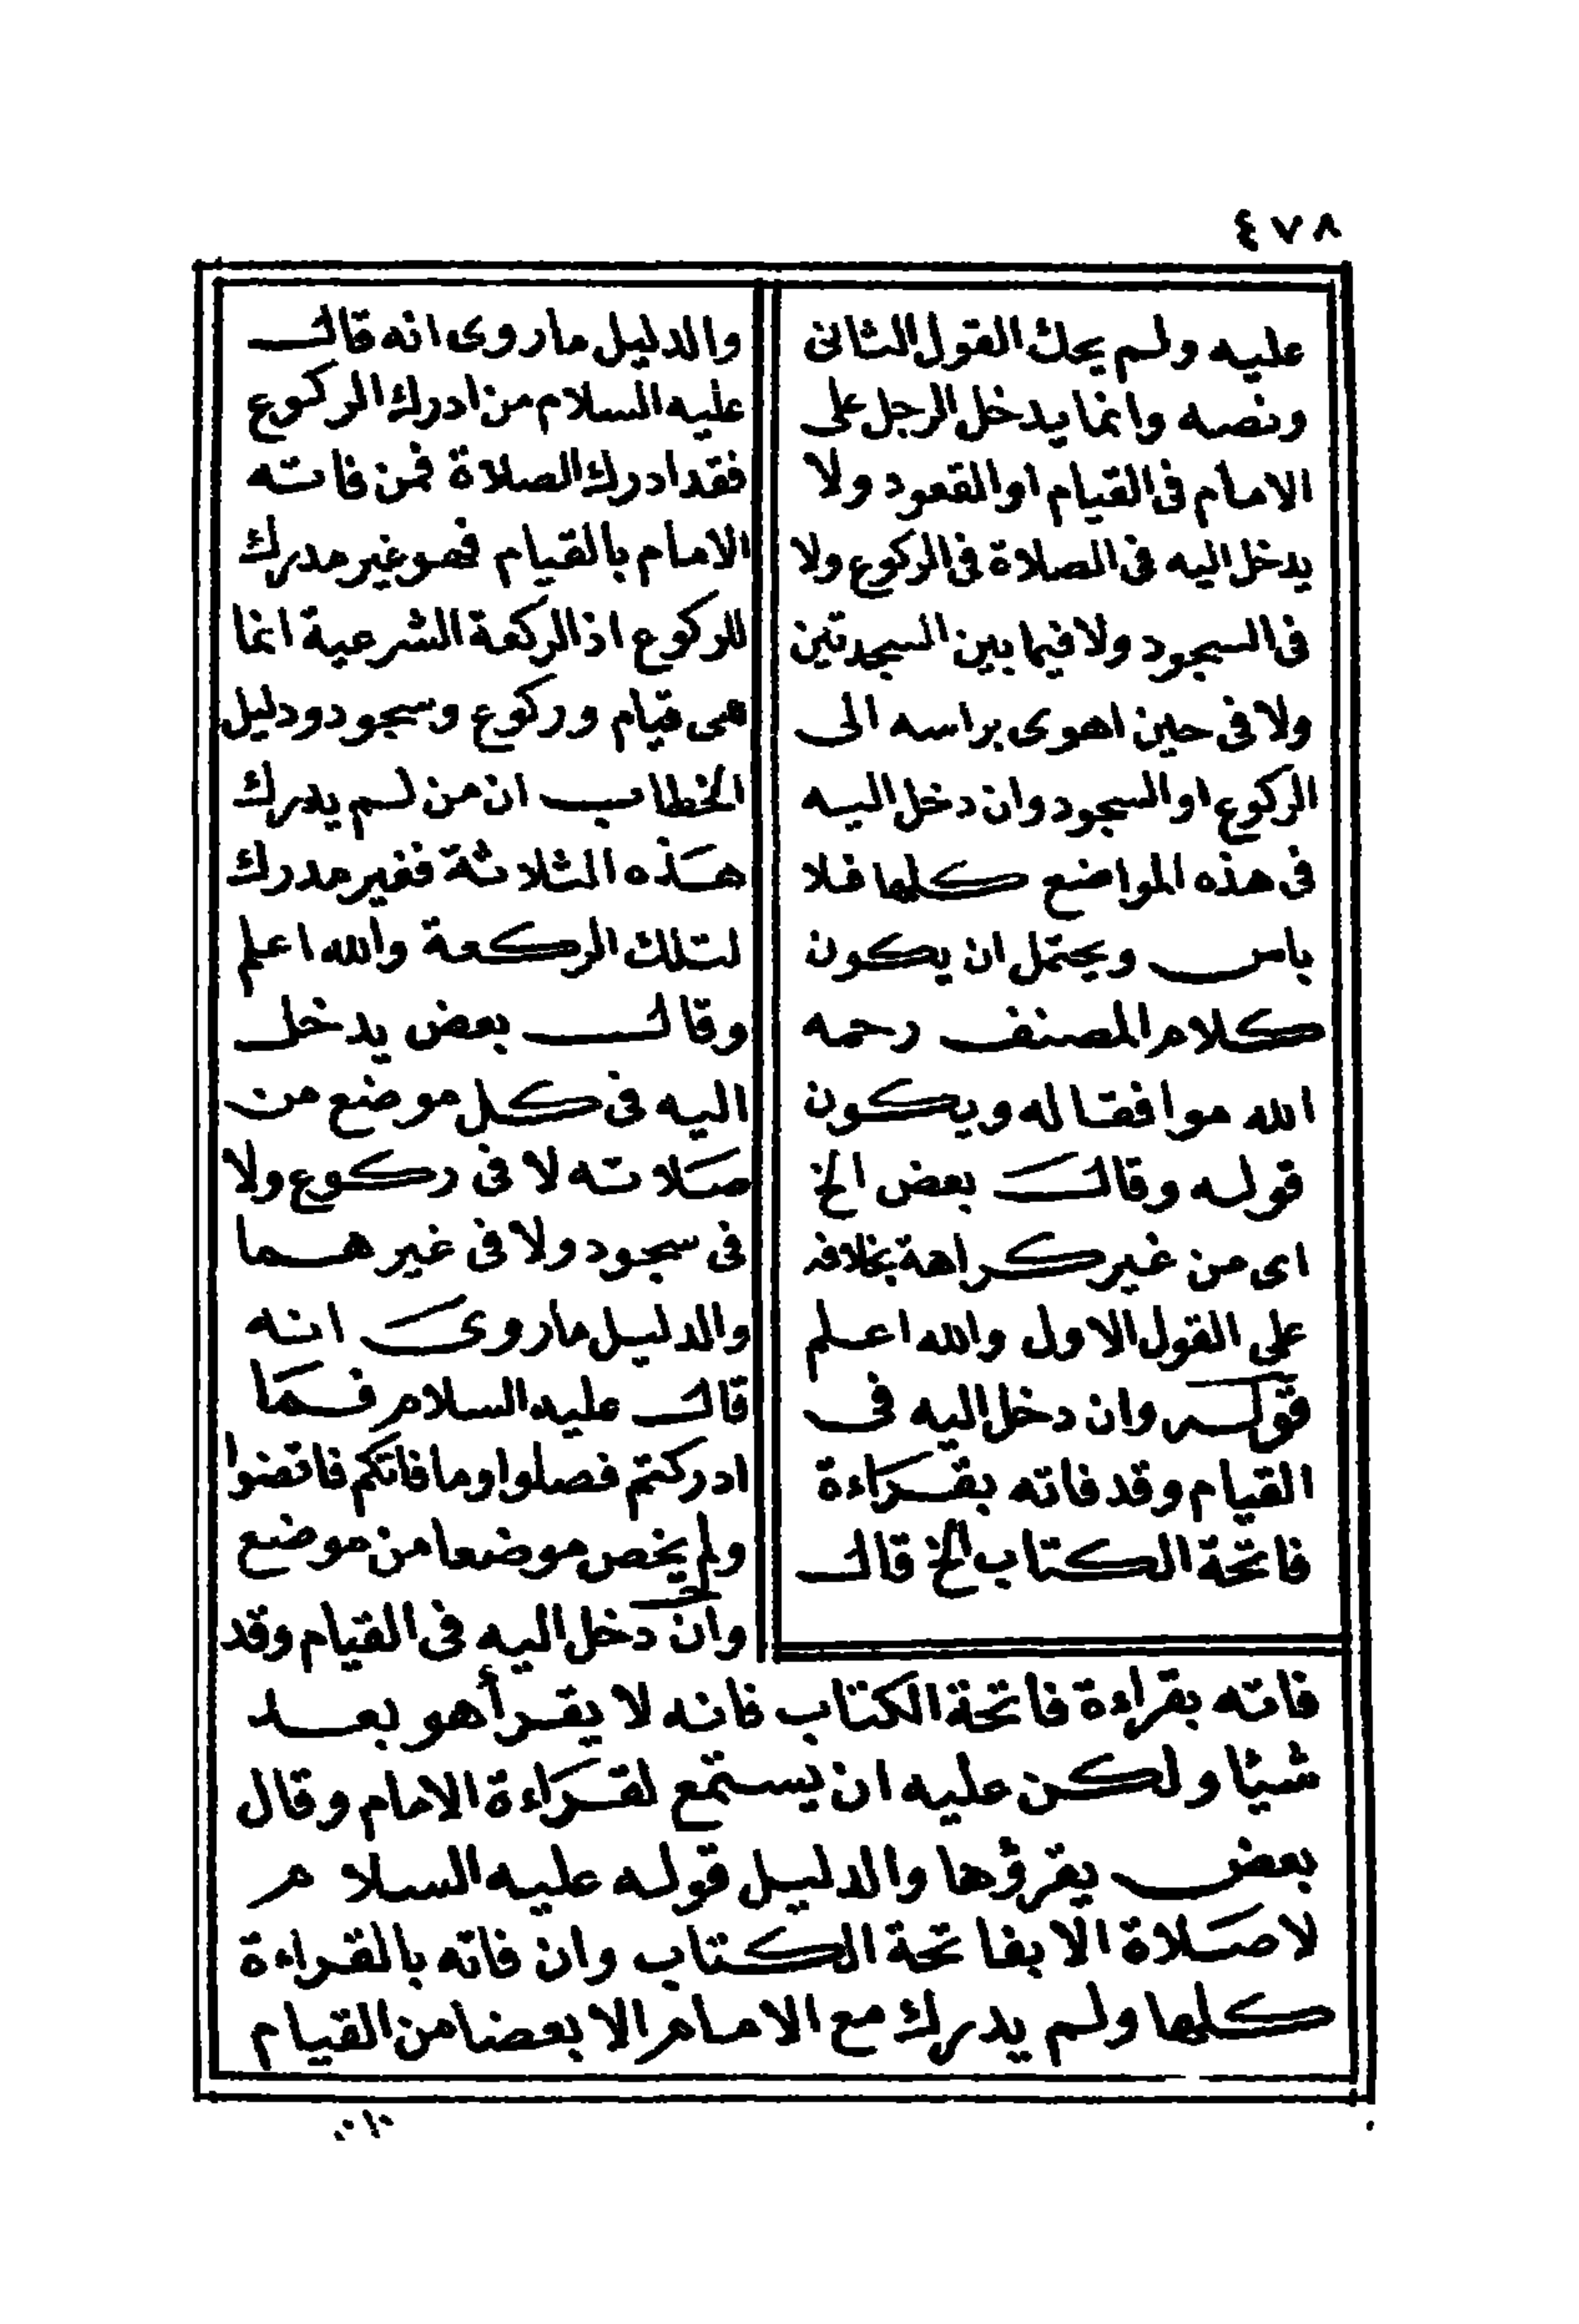 ٤٧٨
عليه ولم يحك القول الثانى
ونصه وانما يدخل الرجل على
الامام فى القيام او القعود ولا
يدخل اليه فى الصلاة فى الركوع ولا
فى السجود ولا فيما بين السجدتين
ولا فى حين اهوى براسه الى
الركوع او السجود وان دخل اليه
فى هذه المواضع كلها فلا
باس ويحتمل ان يكون
كلام المصنف رحمه
الله موافقا له ويكون
قوله وقال بعض الخ
اى من غير كراهة بخلافه
على القول الاول والله اعلم
قوله وان دخل اليه فى
القيام وقد فاته بقراءة
فاتحة الكتاب الخ قال
والدليل ما روى انه قال
عليه السلام من ادرك الركوع
فقد ادرك الصلاة فمن فاته
الامام بالقيام فهو غير مدرك
للركوع اذ الركعة الشرعية انما
هى قيام وركوع وسجود ودليل
الخطاب ان من لم يدرك
هذه الثلاثة فغير مدرك
لتلك الركعة والله اعلم
وقال بعض يدخل
اليه فى كل موضع من
صلاته لا فى ركوع ولا
فى سجود ولا فى غيرهما
والدليل ما روى انه
قال عليه السلام فما
ادركتم فصلوا وما فاتكم فاقضوا
ولم يخص موضعا من موضع
وان دخل اليه فى القيام وقد
فاته بقراءة فاتحة الكتاب فانه لا يقرأ هو بعد
شيئا ولكن عليه ان يستمع لقراءة الامام وقال
بعض يقرؤها والدليل قوله عليه السلام
لا صلاة الا بفاتحة الكتاب وان فاته بالقراءة
كلها ولم يدرك مع الامام الا بعضا من القيام